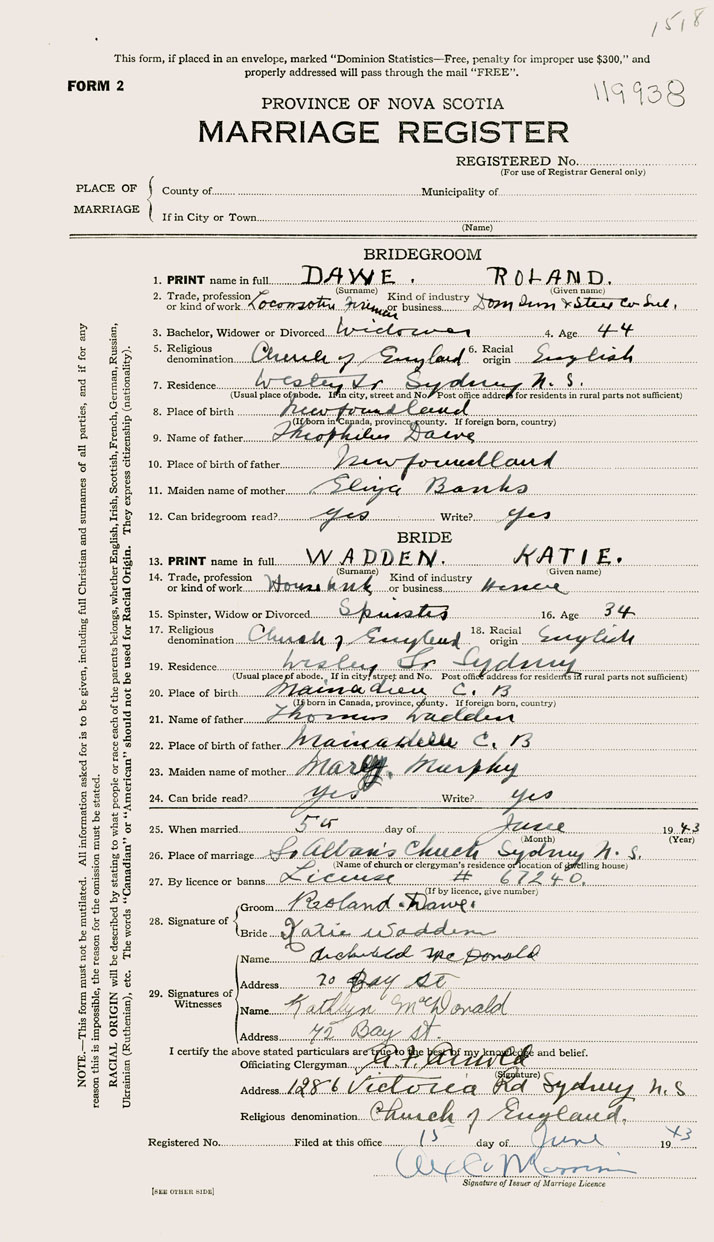 1518
This form, if placed in an envelope, marked "Dominion Statistics—Free, penalty for improper use $300," and
properly addressed will pass through the mail "FREE".
FORM 2
119938
PROVINCE OF NOVA SCOTIA
MARRIAGE REGISTER
REGISTERED No.
(For use of Registrar General only)
PLACE OF MARRIAGE
County of Municipality of
If in City or Town
(Name)
BRIDEGROOM
1. PRINT name in full DAWE. ROLAND.
(Surname) (Given name)
2. Trade, profession or kind of work Locomotive Fireman Kind of industry or business Dom Iron & Steel Co Ltd.
3. Bachelor, Widower or Divorced Widower 4. Age 44
5. Religious denomination Church of England 6. Racial origin English
7. Residence Wesley St Sydney N. S.
(Usual place of abode. If in city, street and No. Post office address for residents in rural parts not sufficient)
8. Place of birth Newfoundland
(If born in Canada, province, county. If foreign born, country)
9. Name of father Theophilus Dawe
10. Place of birth of father Newfoundland
11. Maiden name of mother Eliza Banks
12. Can bridegroom read? yes Write? yes
BRIDE
13. PRINT name in full WADDEN. KATIE.
(Surname) (Given name)
14. Trade, profession or kind of work Housework Kind of industry or business
15. Spinster, Widow or Divorced Spinster 16. Age 34
17. Religious denomination Church of England 18. Racial origin English
19. Residence Wesley St Sydney
(Usual place of abode. If in city, street and No. Post office address for residents in rural parts not sufficient)
20. Place of birth Mainadieu C. B
(If born in Canada, province, county. If foreign born, country)
21. Name of father Thomas Wadden
22. Place of birth of father Mainadieu C. B
23. Maiden name of mother Mary Murphy
24. Can bride read? yes Write? yes
25. When married 5th day of June 1943
(Month) (Year)
26. Place of marriage St Alban's Church Sydney N. S.
(Name of church or clergyman's residence or location of dwelling house)
27. By licence or banns License # 67240.
(If by licence, give number)
28. Signature of
Groom Roland Dawe.
Bride Katie Wadden
29. Signatures of Witnesses
Name Archibald McDonald
Address 70 Bay St
Name Kathlyn McDonald
Address 72 Bay St.
I certify the above stated particulars are true to the best of my knowledge and belief.
Officiating Clergyman A. F. Arnold
(Signature)
Address 1286 Victoria Rd Sydney N. S
Religious denomination Church of England.
Registered No. Filed at this office 15 day of June 1943
Signature of Issuer of Marriage Licence
[SEE OTHER SIDE]
NOTE.—This form must not be mutilated. All information asked for is to be given, including full Christian and surnames of all parties, and if for any
reason this is impossible, the reason for the omission must be stated.
RACIAL ORIGIN will be described by stating to what people or race each of the parents belongs, whether English, Irish, Scottish, French, German, Russian,
Ukrainian (Ruthenian), etc. The words "Canadian" or "American" should not be used for Racial Origin. They express citizenship (nationality).